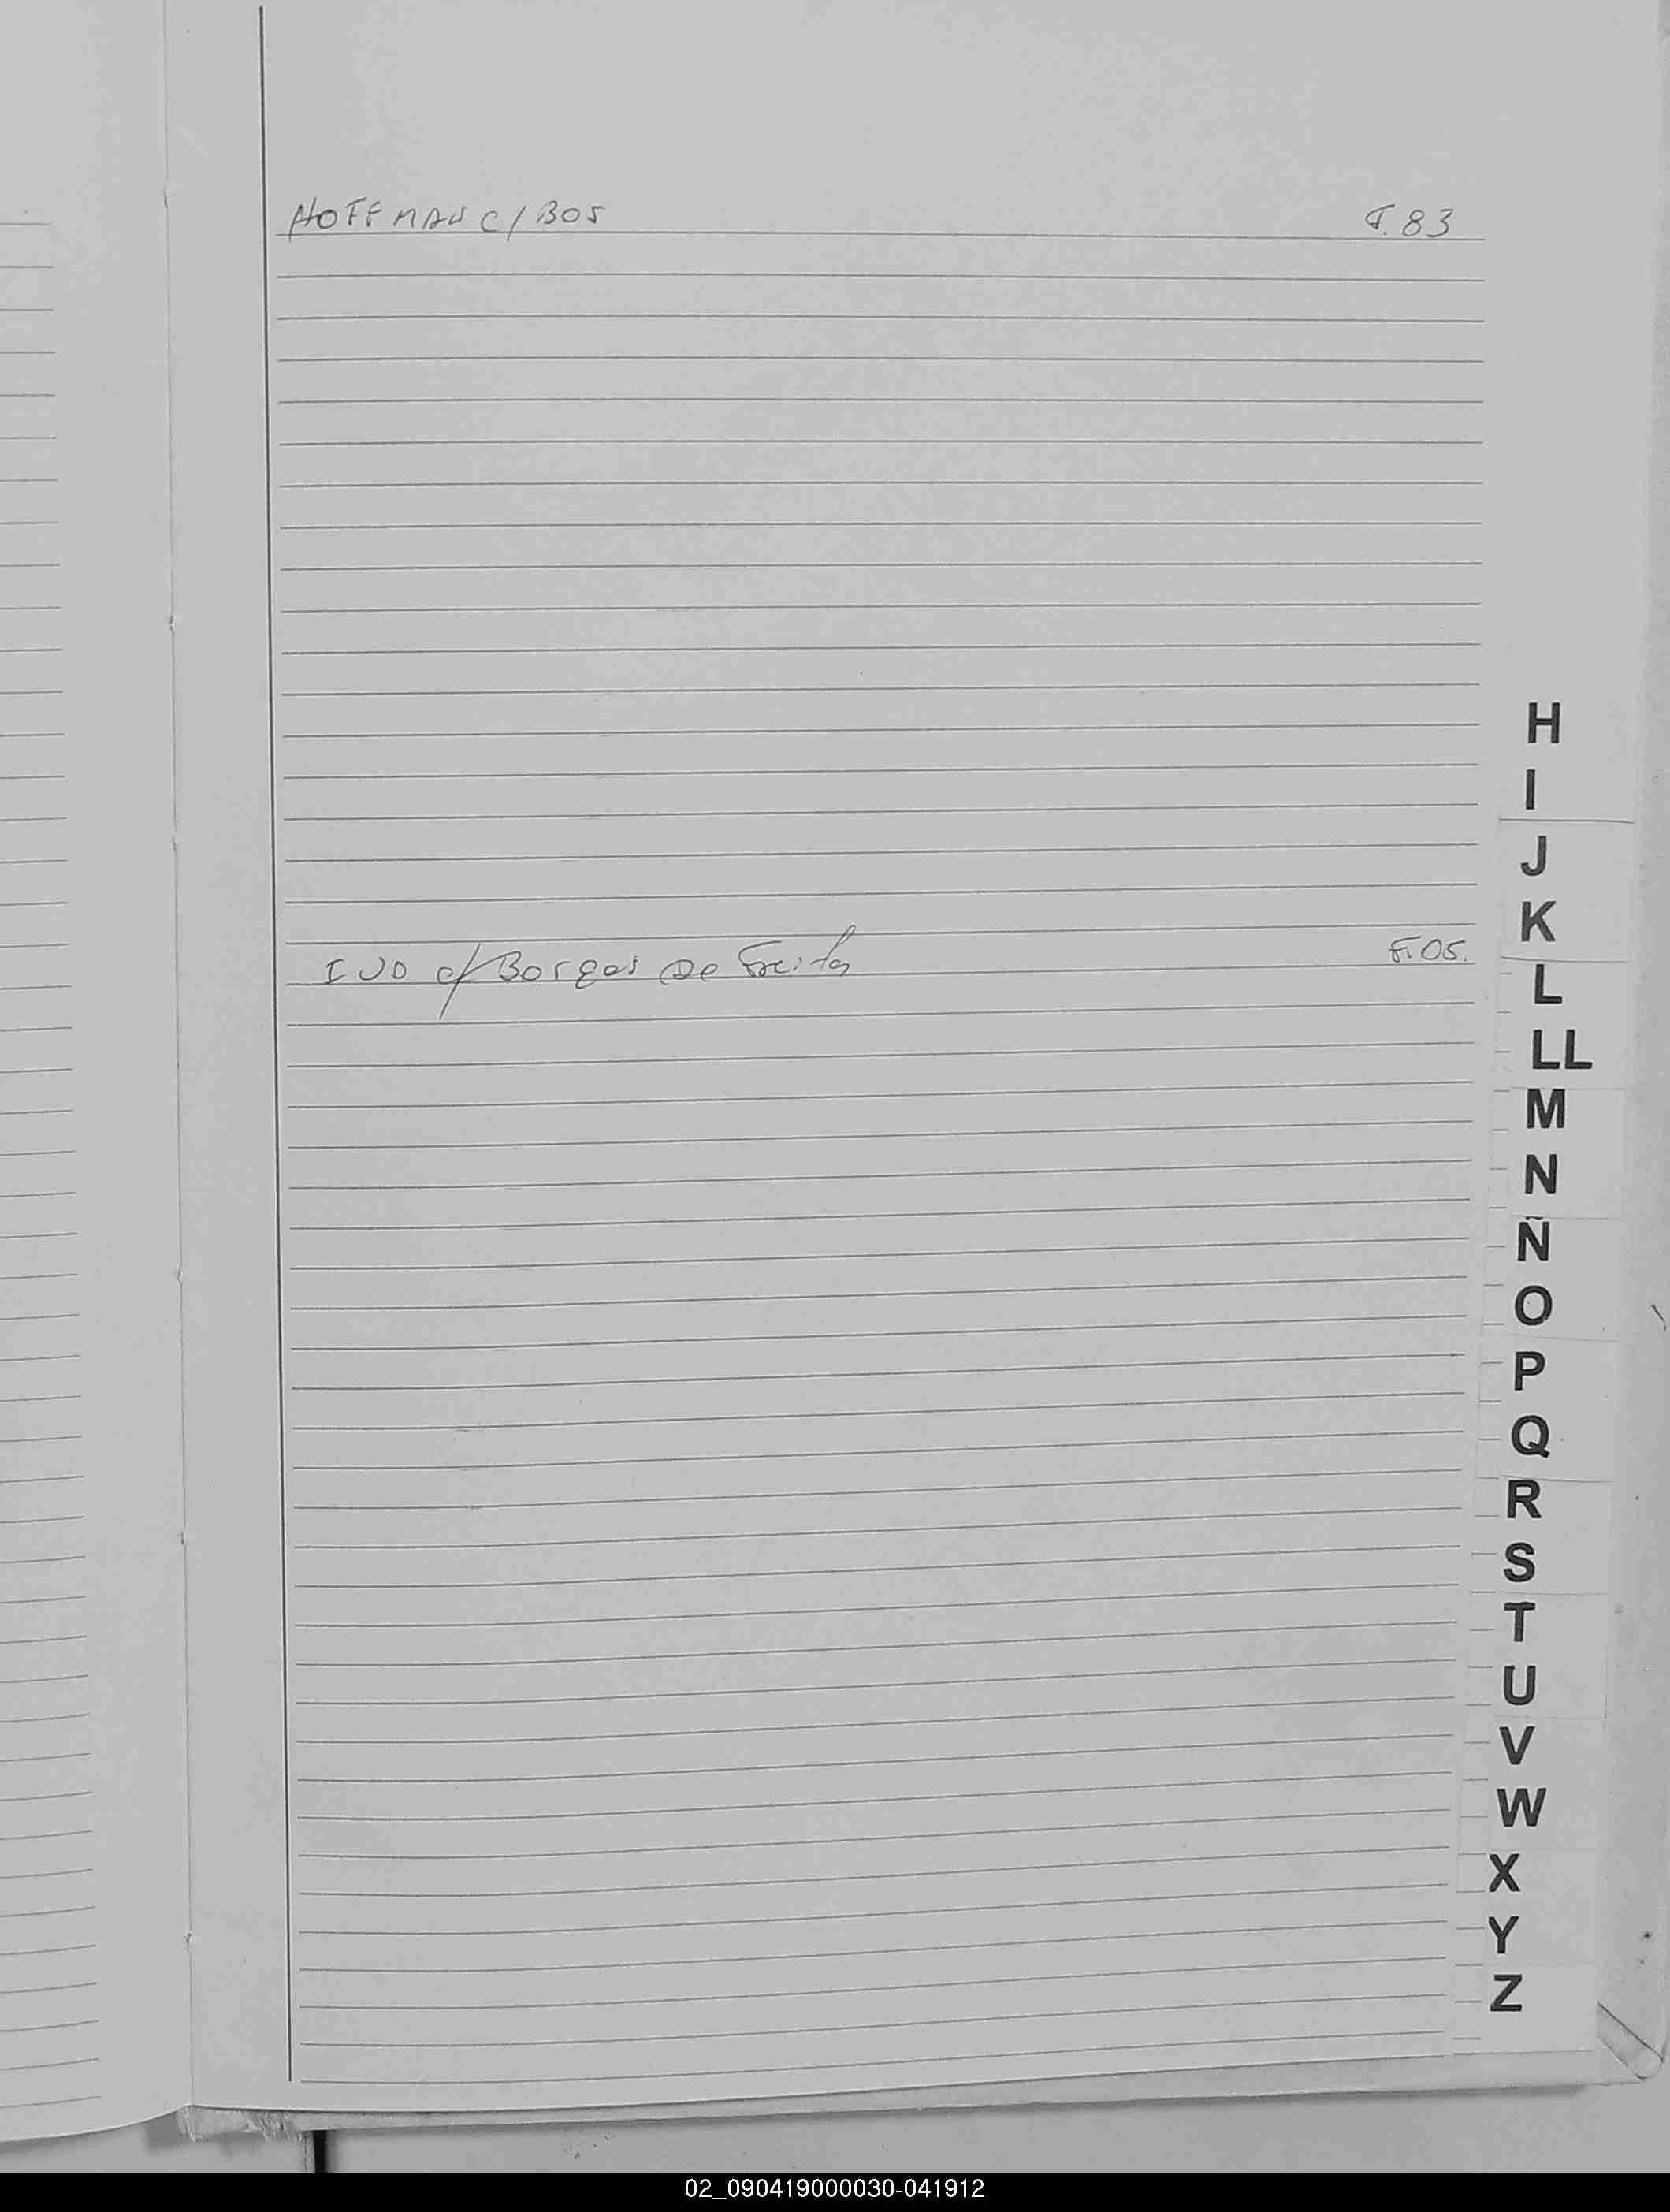 HOFFMAN C/ BOS F. 83
IVO c/ Borges De Freitas F. 05.
H
I
J
K
L
LL
M
N
Ñ
O
P
Q
R
S
T
U
V
W
X
Y
Z
02_090419000030-041912